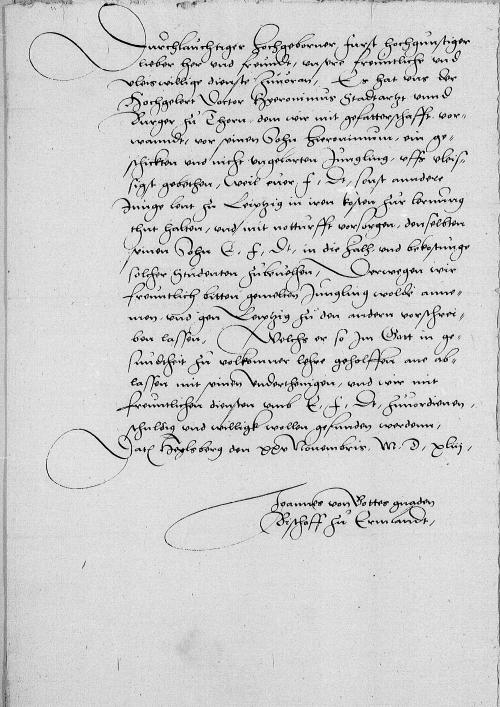 Durchlauchtiger Hochgeborner furst hochgunstiger
lieber her und freundt, unsere freuntliche und
vleiswillige dienste zuvoran, Es hat uns der
Hochgelert Doctor Hyeronimus Stadtartzt unnd
Burger zu Thorn, dem wir mit gefatterschafft vor-
wanndt, vor seinen Sohn Hieronimum, ein ge-
schickten und nicht ungelarten Jungling, uffs vleis-
sigst gebethen, Weil euer f. Dt. sonst anndere
Junge leut zu Leiptzig in iren kosten zur lernung
thut halten, und mit notturfft vorsorgen, denselbten
seinen Sohn E. f. Dt. in die zall und bekostunge
solcher Studenten zubevelhen, Derwegen wir
freuntlich bitten gemelten Jungling wolde anne-
men, und gen Leiptzig zu den andern vorschrei-
ben lassen, Welchs er so Im Gott in ge-
sundtheit zu volkomner lehre geholffen ane ab-
lassen mit seinen Underthenigen, und wir mit
freuntlichen diensten umb E. f. Dt. zuvordienen,
schuldig und willigk wollen gefunden werdenn,
Dat Heylsberg den xxv Novembris. M. D. xlvi.
Joannes von Gottes gnaden
Bischoff zu Ermlandt,